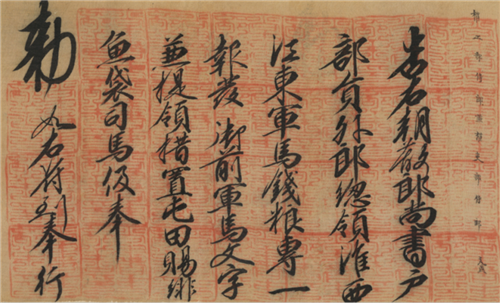 告右朝散郎尚書戶
部員外郎總領淮西
江東軍馬錢粮專一
報發 御前軍馬文字
兼提領措置屯田賜緋
魚袋司馬伋奉
勅如右符到奉行